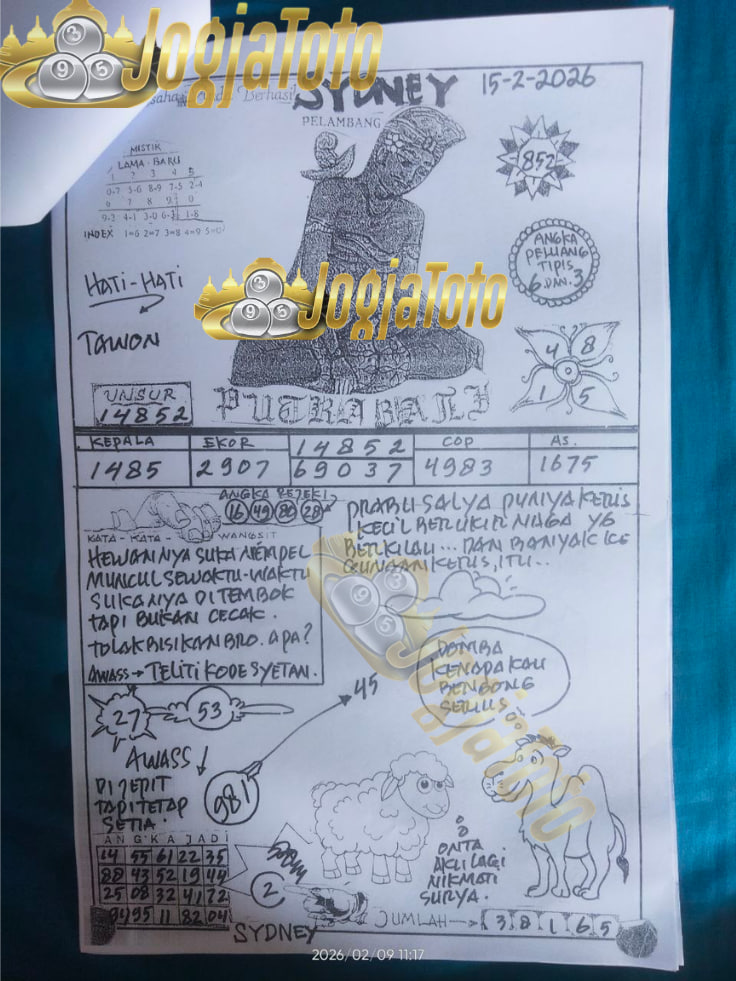 JogjaToto
3
9 5
Berhasil
SYDNEY
15-2-2026
PELAMBANG
MISTIK
LAMA - BARU
1 2 3 4 5
0-7 5-6 8-9 7-5 2-4
6 7 8 9 0
9-2 4-1 3-0 6-3 1-8
INDEX 1=6 2=7 3=8 4=9 5=0
852
ANGKA
PELUANG
TIPIS
6 DAN 3
HATI-HATI
TAWON
JogjaToto
3
9 5
4 8
1 5
UNSUR
14852
PUTRA BALI
KEPALA EKOR 14852 COP AS.
1485 2907 69037 4983 1675
ANGKA REJEKI
16 49 80 28
KATA - KATA - WANGSIT
HEWANNYA SUKA NEMPEL
MUNCUL SEWAKTU-WAKTU
SUKANYA DI TEMBOK
TAPI BUKAN CECAK.
TOLAK BISIKAN BRO. APA?
AWASS → TELITI KODE SYETAN.
PRABU SALYA PUNYA KERIS
KECIL BERUKIR NAGA YG
BERKILAU... DAN BANYAK KE
GUNAAN KERIS, ITU..
JogjaToto
3
9 5
DOMBA
KENAPA KAU
BENGONG
SERIUS
27
53
45
AWASS
DI JEPIT
TAPI TETAP
SETIA.
981
ANGKA JADI
14 55 61 22 35
88 43 52 19 44
25 08 32 41 72
94 95 11 82 04
2
ONTA
AKU LAGI
NIKMATI
SURYA.
SYDNEY
JUMLAH → 3 8 1 6 5
2026/02/09 11:17